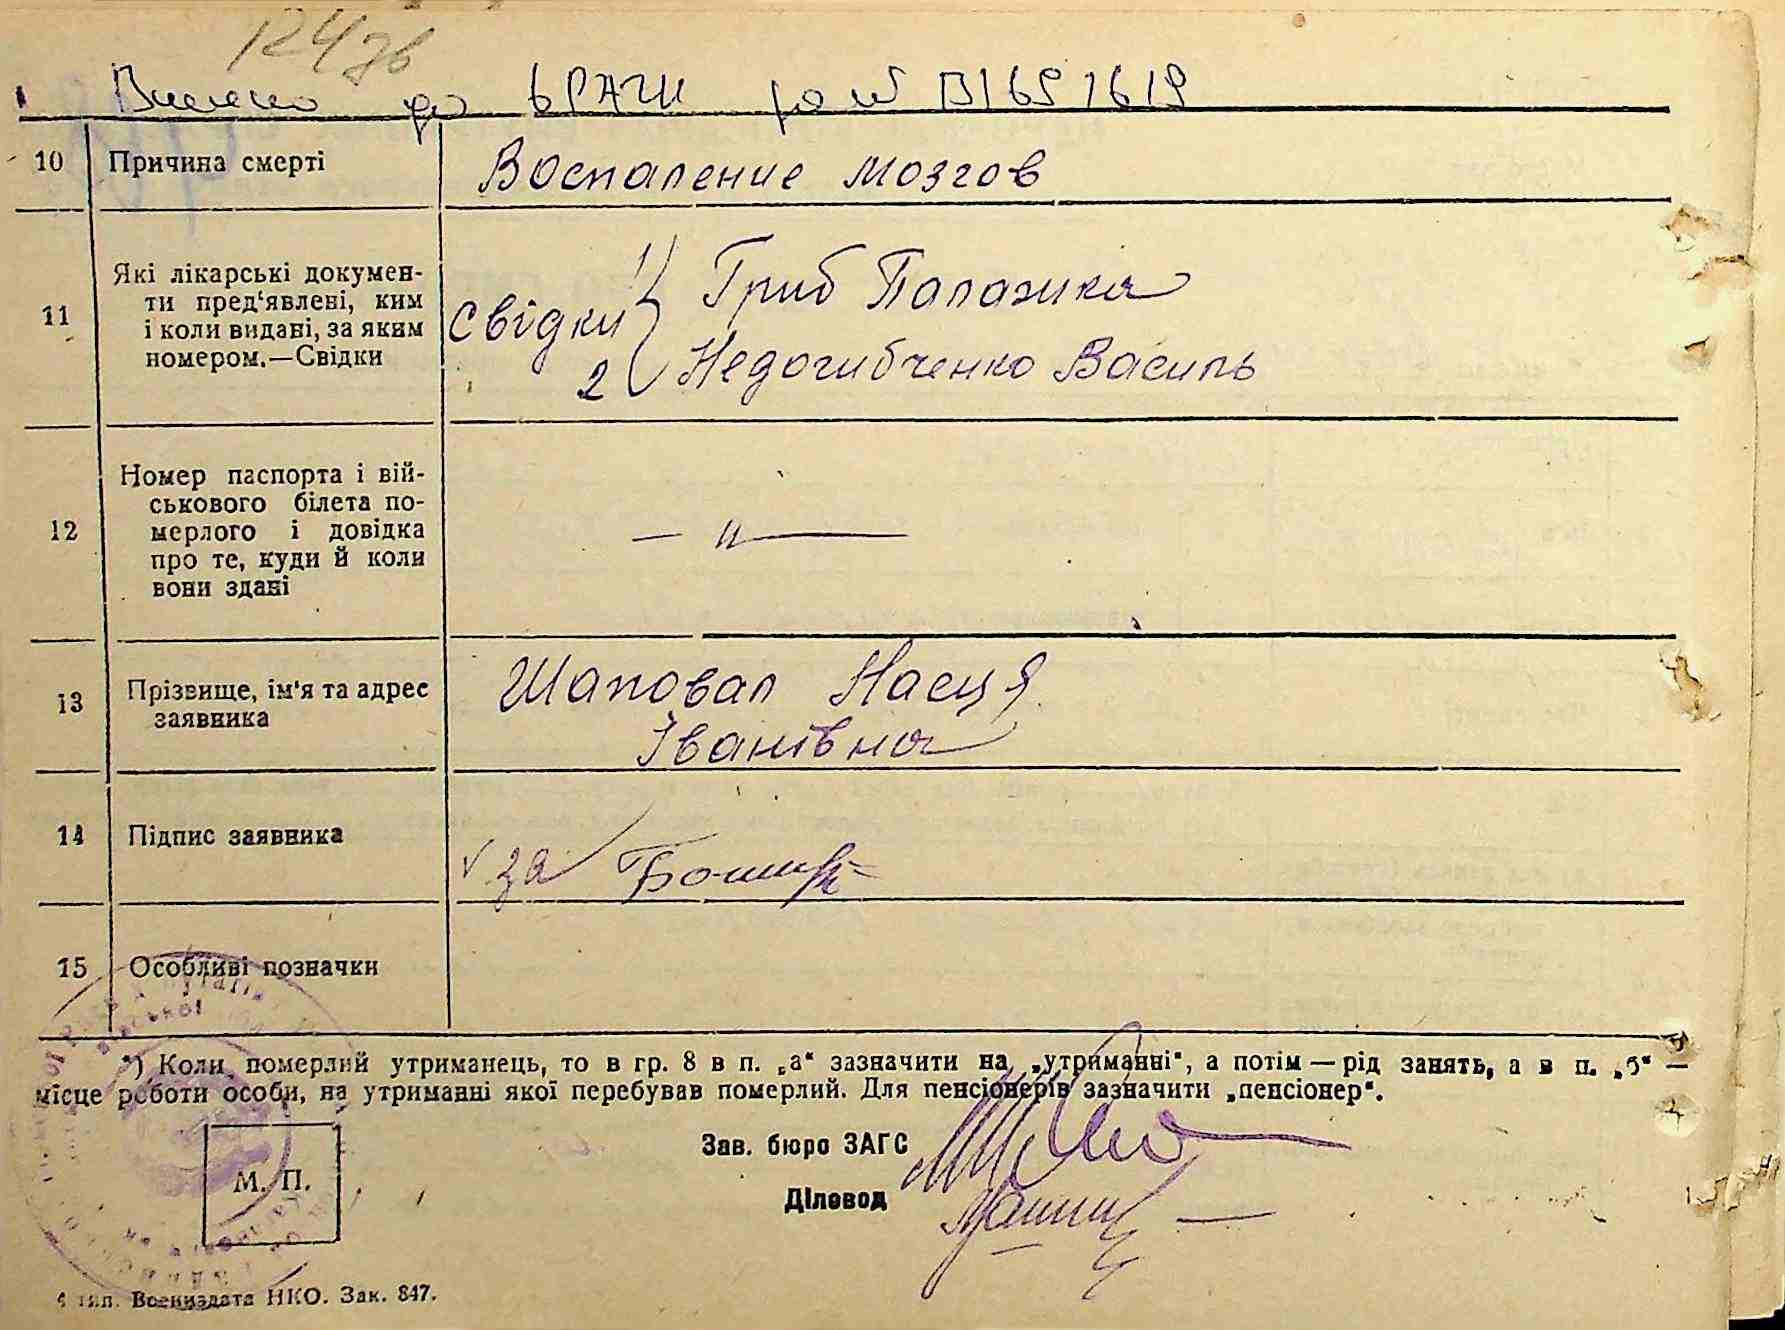 124зв
Внесено до ДРАЦС
10 Причина смерті Воспаление мозгов
11 Які лікарські докумен-
ти пред‘явлені, ким
і коли видані, за яким
номером.—Свідки
Свідки 1) Гриб Палажка
2 Недогибченко Василь
12 Номер паспорта і вій-
ськового білета по-
мерлого і довідка
про те, куди й коли
вони здані
— „ —
13 Прізвище, ім'я та адрес
заявника
Шаповал Насця
Іванівна
14 Підпис заявника
за
15 Особливі позначки
*) Коли померлий утриманець, то в гр. 8 в п. „а“ зазначити на „утриманні“, а потім — рід занять, а в п. „б“ —
місце роботи особи, на утриманні якої перебував померлий. Для пенсіонерів зазначити „пенсіонер“.
Зав. бюро ЗАГС
М. П.
Діловод
4 тип. Воениздата НКО. Зак. 847.